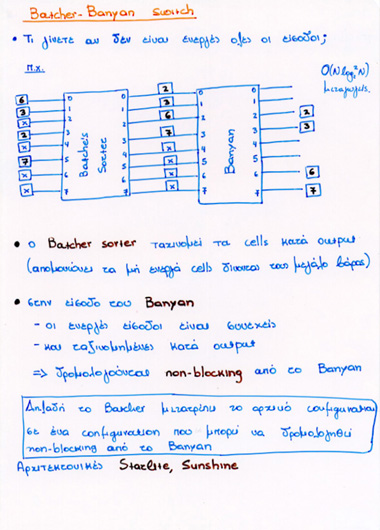 Batcher-Banyan switch
• Τι γίνεται αν δεν είναι ενεργές όλες οι είσοδοι;
π.χ.
O(N log₂² N)
μεταγωγείς.
6 0 0 2 0 0
3 1 1 3 1 1
x 2 2 6 2 2 2
2 3 3 7 3 3 3
x 4 4 x 4 4
7 5 5 x 5 5
x 6 6 x 6 6 6
x 7 7 x 7 7 7
Batcher's
Sorter
Banyan
• ο Batcher sorter ταξινομεί τα cells κατά output
(απομονώνει τα μη ενεργά cells δίνοντάς τους μεγάλο βάρος)
• στην είσοδο του Banyan
- οι ενεργές είσοδοι είναι συνεχείς
- και ταξινομημένες κατά output
=> δρομολογούνται non-blocking από το Banyan
Δηλαδή το Batcher μετατρέπει το αρχικό configuration
σε ένα configuration που μπορεί να δρομολογηθεί
non-blocking από το Banyan
Αρχιτεκτονικές Starlite, Sunshine